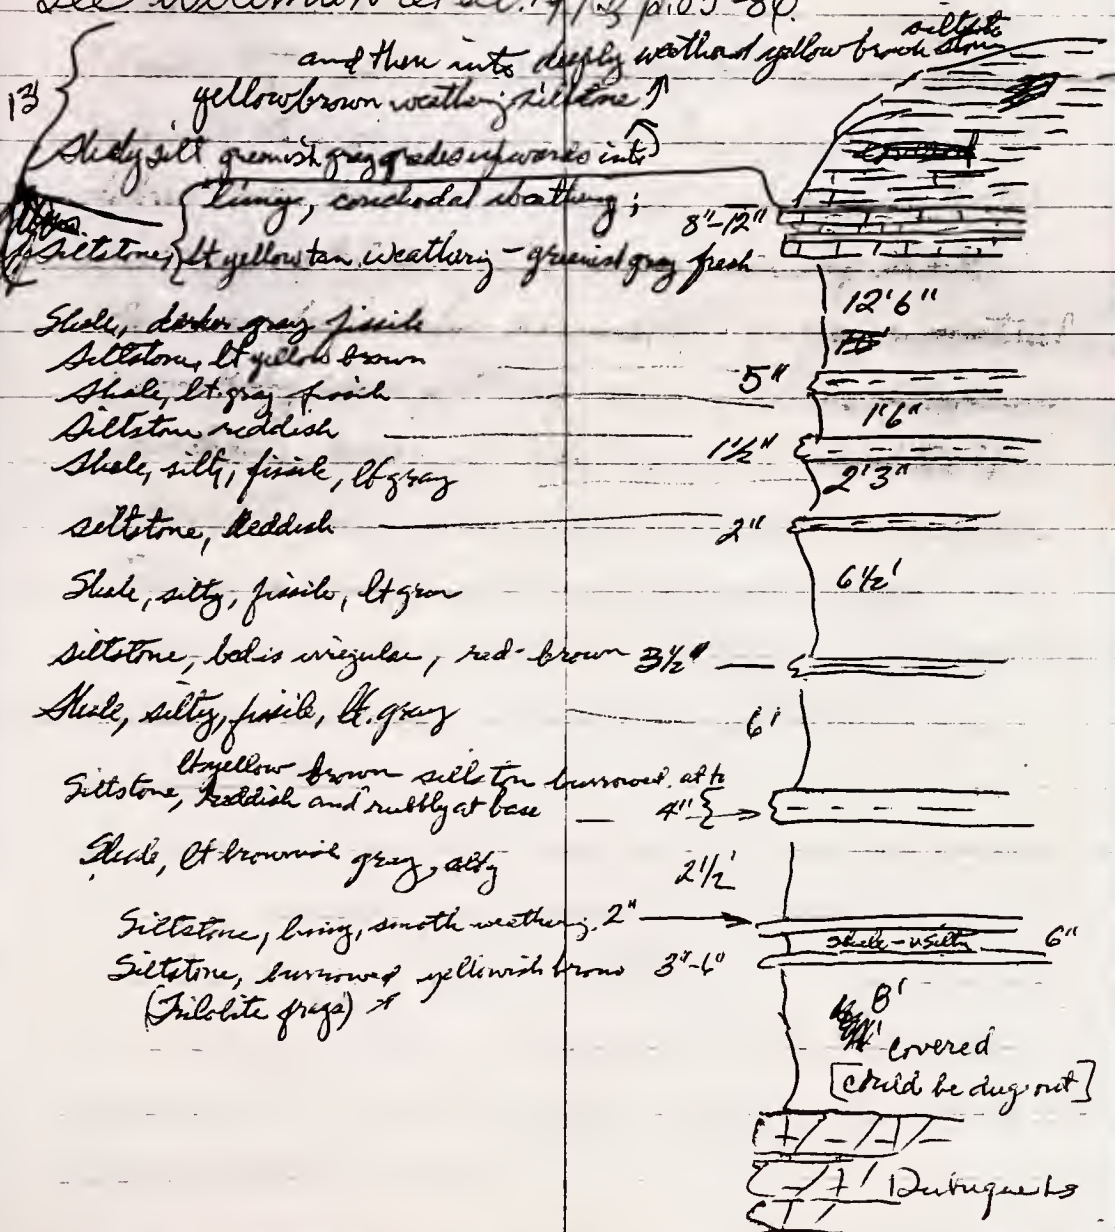 see et al. 19 p. 85-86.
siltstone
and then into deeply weathered yellow brown
yellow brown weathering siltstone
13'
Shaly silt greenish gray grades upwards into
limy, conchodal weathing;
8"-12"
Siltstone, lt yellow tan weathering - greenish gray fresh
12'6"
Shale, darker gray fissile
Siltstone, lt yellow brown
5"
Shale, lt. gray fissile
1'6"
Siltstone reddish
1½"
Shale, silty, fissile, lt gray
2'3"
siltstone, reddish
2"
Shale, silty, fissile, lt gray
6½'
siltstone, bed is irregular, red-brown 3½"
Shale, silty, fissile, lt. gray
6'
lt yellow brown siltston burrowed at to
Siltstone, reddish and rubbly at base
4"
Shale, lt brownish gray, silty
2½'
Siltstone, limy, smooth weathering. 2"
shale - v silty 6"
Siltstone, burrowed yellowish brown 3"-6"
(Trilobite frags)
8'
covered
[could be dug out]
Dubuque Ls